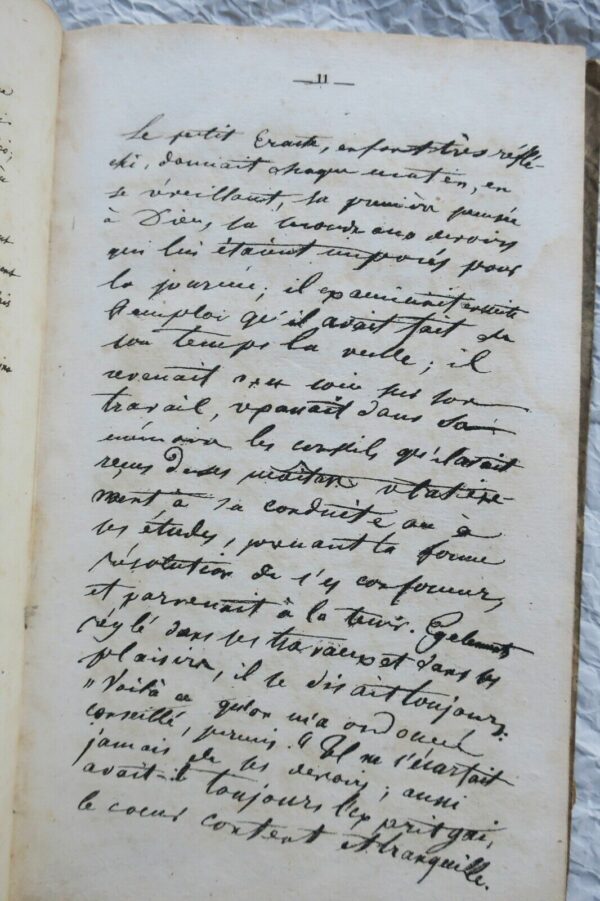 — 11 —
Le petit Eraste, enfant très réflé-
chi, donnait chaque matin, en
se éveillant, sa première pensée
à Dieu, sa seconde aux devoirs
qui lui étaient imposés pour
la journée; il examinait ensuite
l'emploi qu'il avait fait de
son temps la veille; il
revenait avec soin sur son
travail, repassait dans sa
mémoire les conseils qu'il avait
reçus de ses maîtres relative-
ment à sa conduite ou à
ses études, prenant la ferme
résolution de s'y conformer,
et parvenait à la tenir. Egalement
réglé dans ses travaux et dans ses
plaisirs, il se disait toujours:
"Voilà ce qu'on m'a ordonné,
conseillé, permis." Il ne s'écartait
jamais de ses devoirs; aussi
avait-il toujours l'esprit gai,
le coeur content et tranquille.